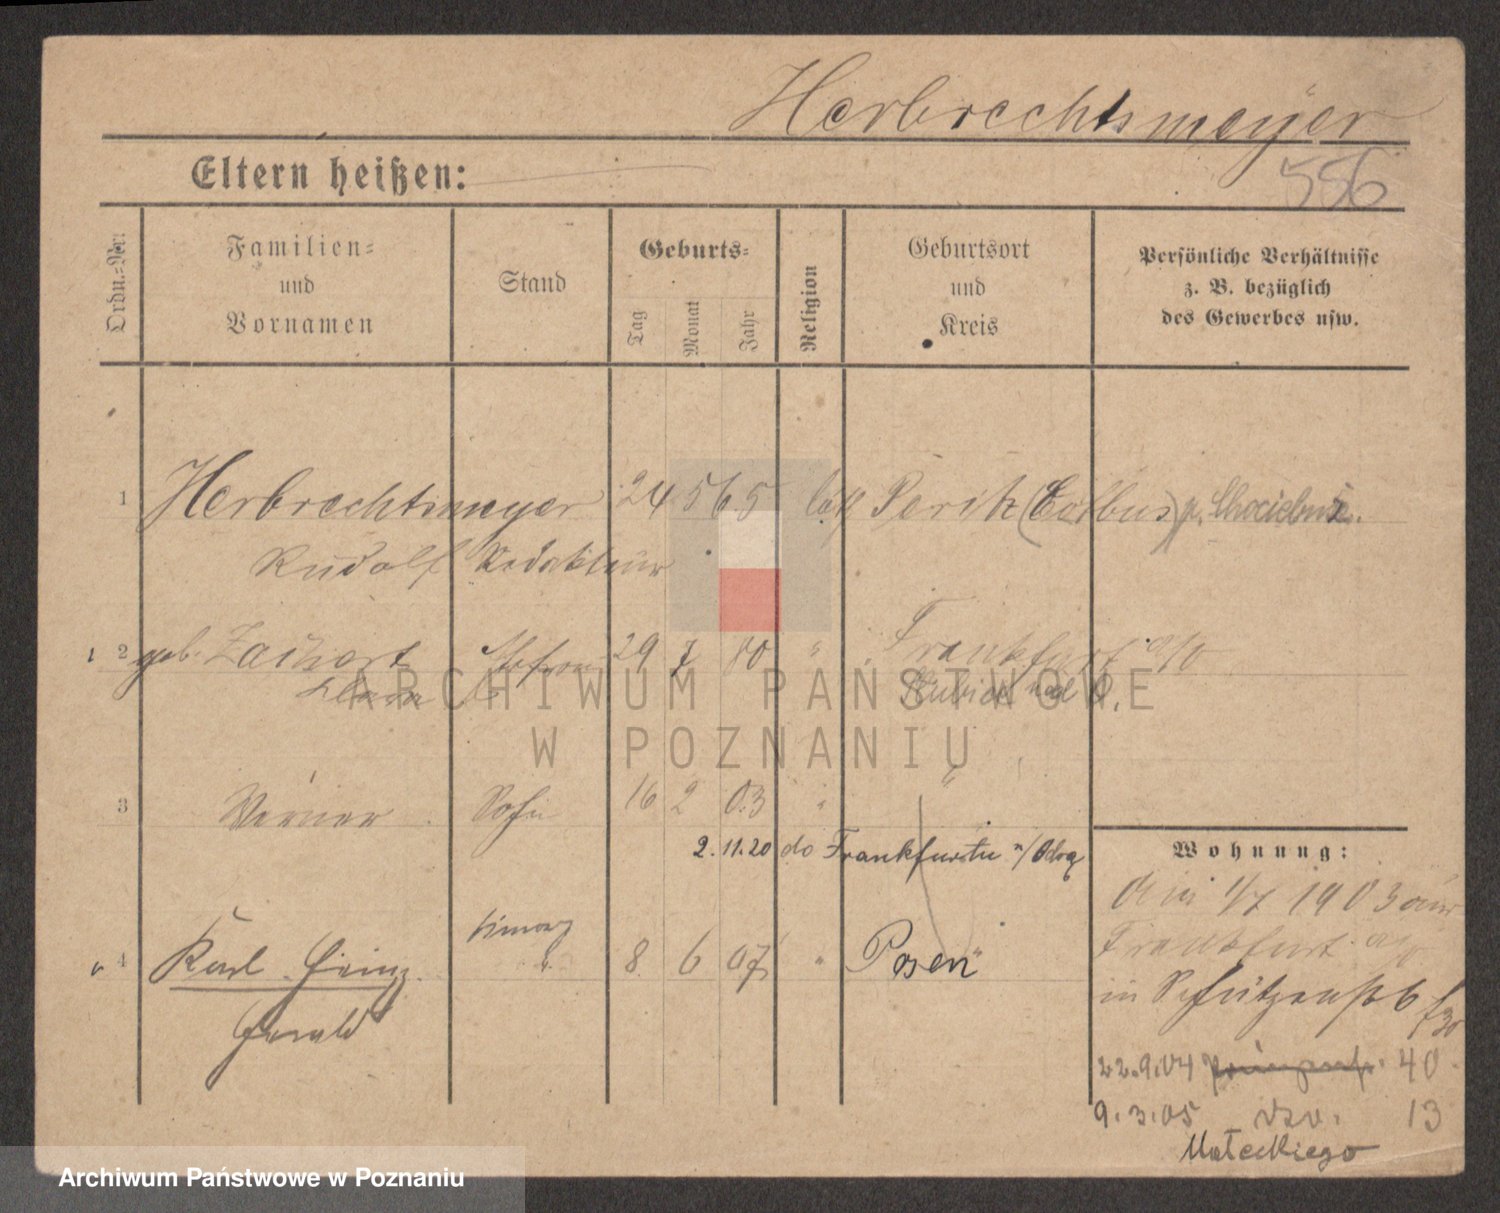 Herbrechtsmeyer
556
Eltern heißen:
Ordn.=Nr.
Familien= und Vornamen
Stand
Geburts=
Tag
Monat
Jahr
Religion
Geburtsort und Kreis
Persönliche Verhältnisse z. B. bezüglich des Gewerbes usw.
1 Herbrechtsmeyer 24 5 65 (Cottbus) p. Chociebuż.
Rudolf Redakteur
2 geb. Ehefrau 29 7 80 " Frankfurt a/O
Clara
ARCHIWUM PAŃSTWOWE
W POZNANIU
3 Werner Sohn 16 2 03 " "
2.11.20 do Frankfurtu n/Odrą
4 Karl Heinz 8 6 07 " Posen
Gerald
Wohnung:
1/7 1903 aus
Frankfurt a/O
in Schützenstr 6
22.9.04 40
9.3.05 13
Małeckiego
Archiwum Państwowe w Poznaniu